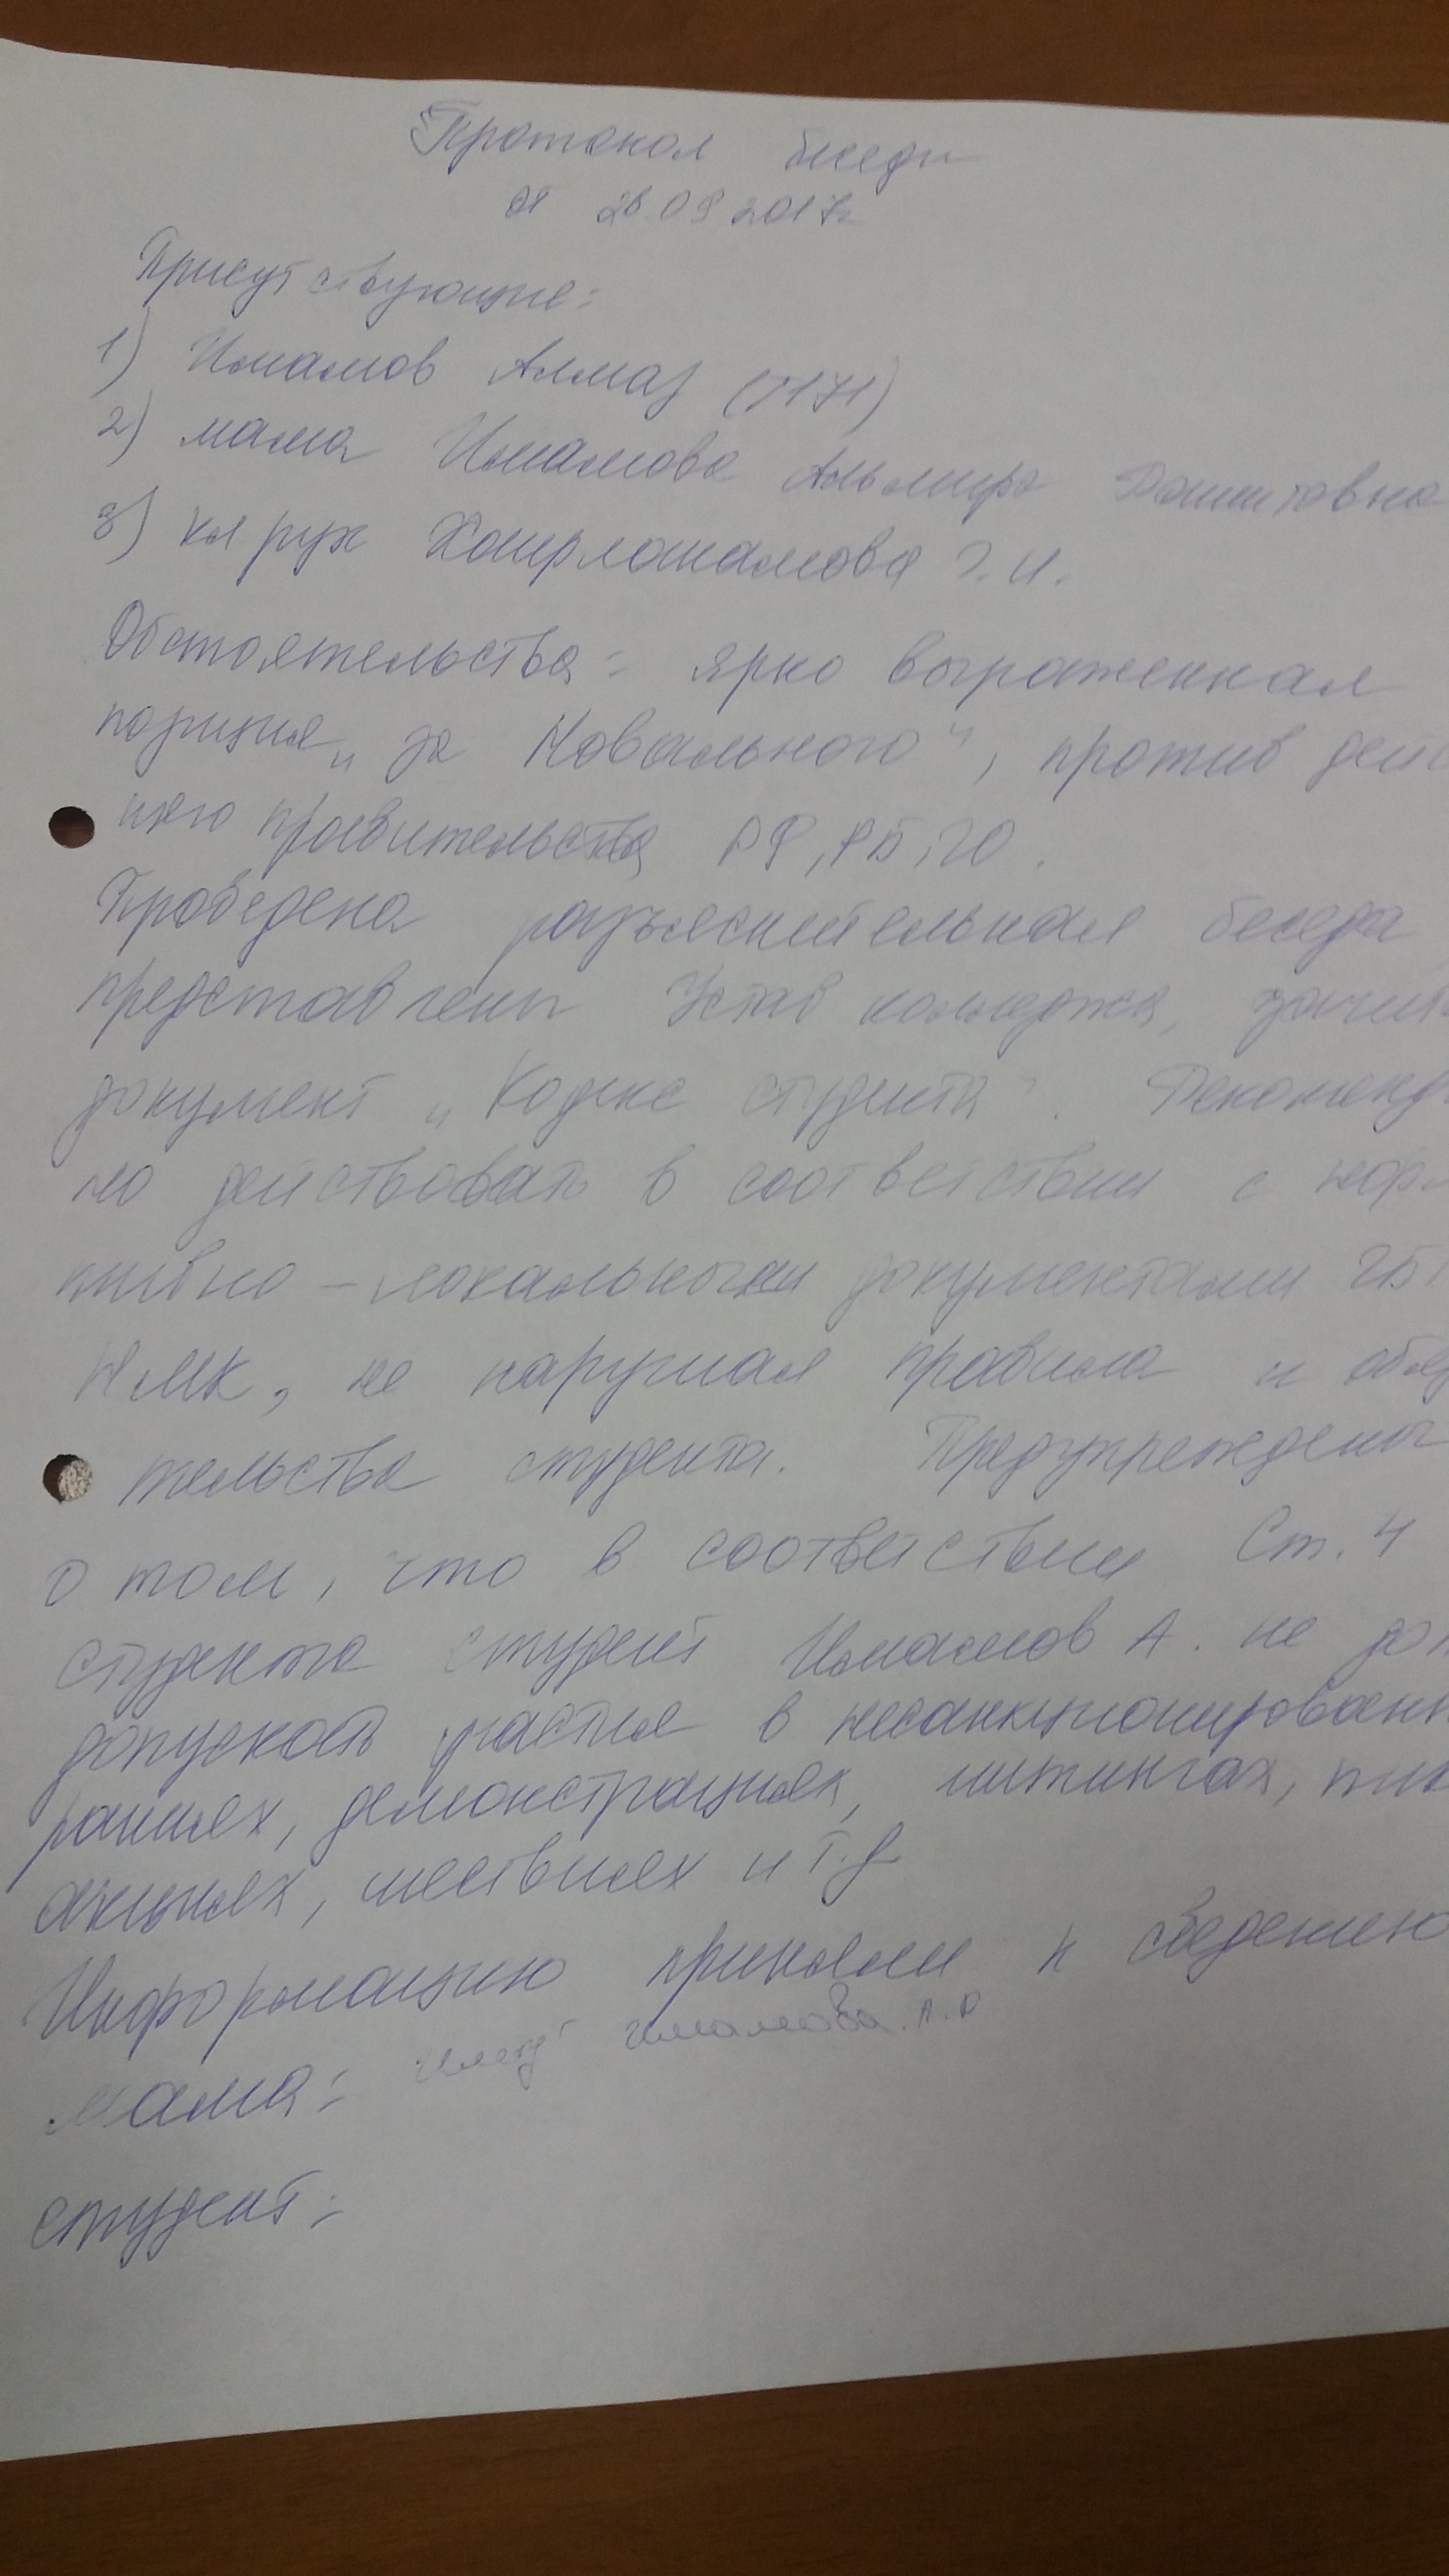 Протокол беседы
от 28.09 2017г
Присутствующие:
1) Имамов Алмаз (1171)
2) мама Имамова Альмира
3) кл рук Хаирламамова Г.И.
Обстоятельства: ярко выраженная
позиция „за Навального", против дейс
щего правительства РФ, РБ, ГО.
Проведена разъяснительная беседа
представлены Устав колледжа, зачит
документ „Кодекс студента". Рекоменд
но действовать в соответствии с норм
тивно-локальными документами
НМК, не нарушая правила и обяз
тельства студента. Предупреждены
о том, что в соответствии Ст. 4
студента студент Имамов А. не дол
допускать участия в несанкционированн
раниях, демонстрациях, митингах, пик
акциях, шествиях и т.д
Информацию приняли к сведению
мама: Имамова. А.Р
студент: